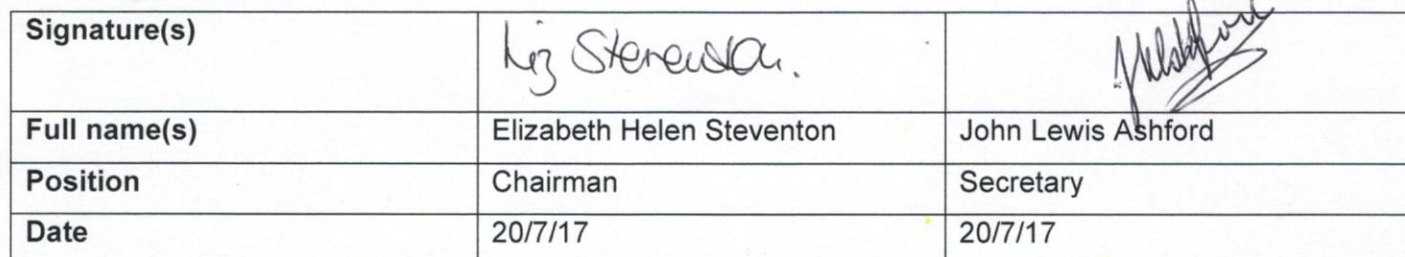 Signature(s) Liz Steventon. JLAshford
Full name(s) Elizabeth Helen Steventon John Lewis Ashford
Position Chairman Secretary
Date 20/7/17 20/7/17